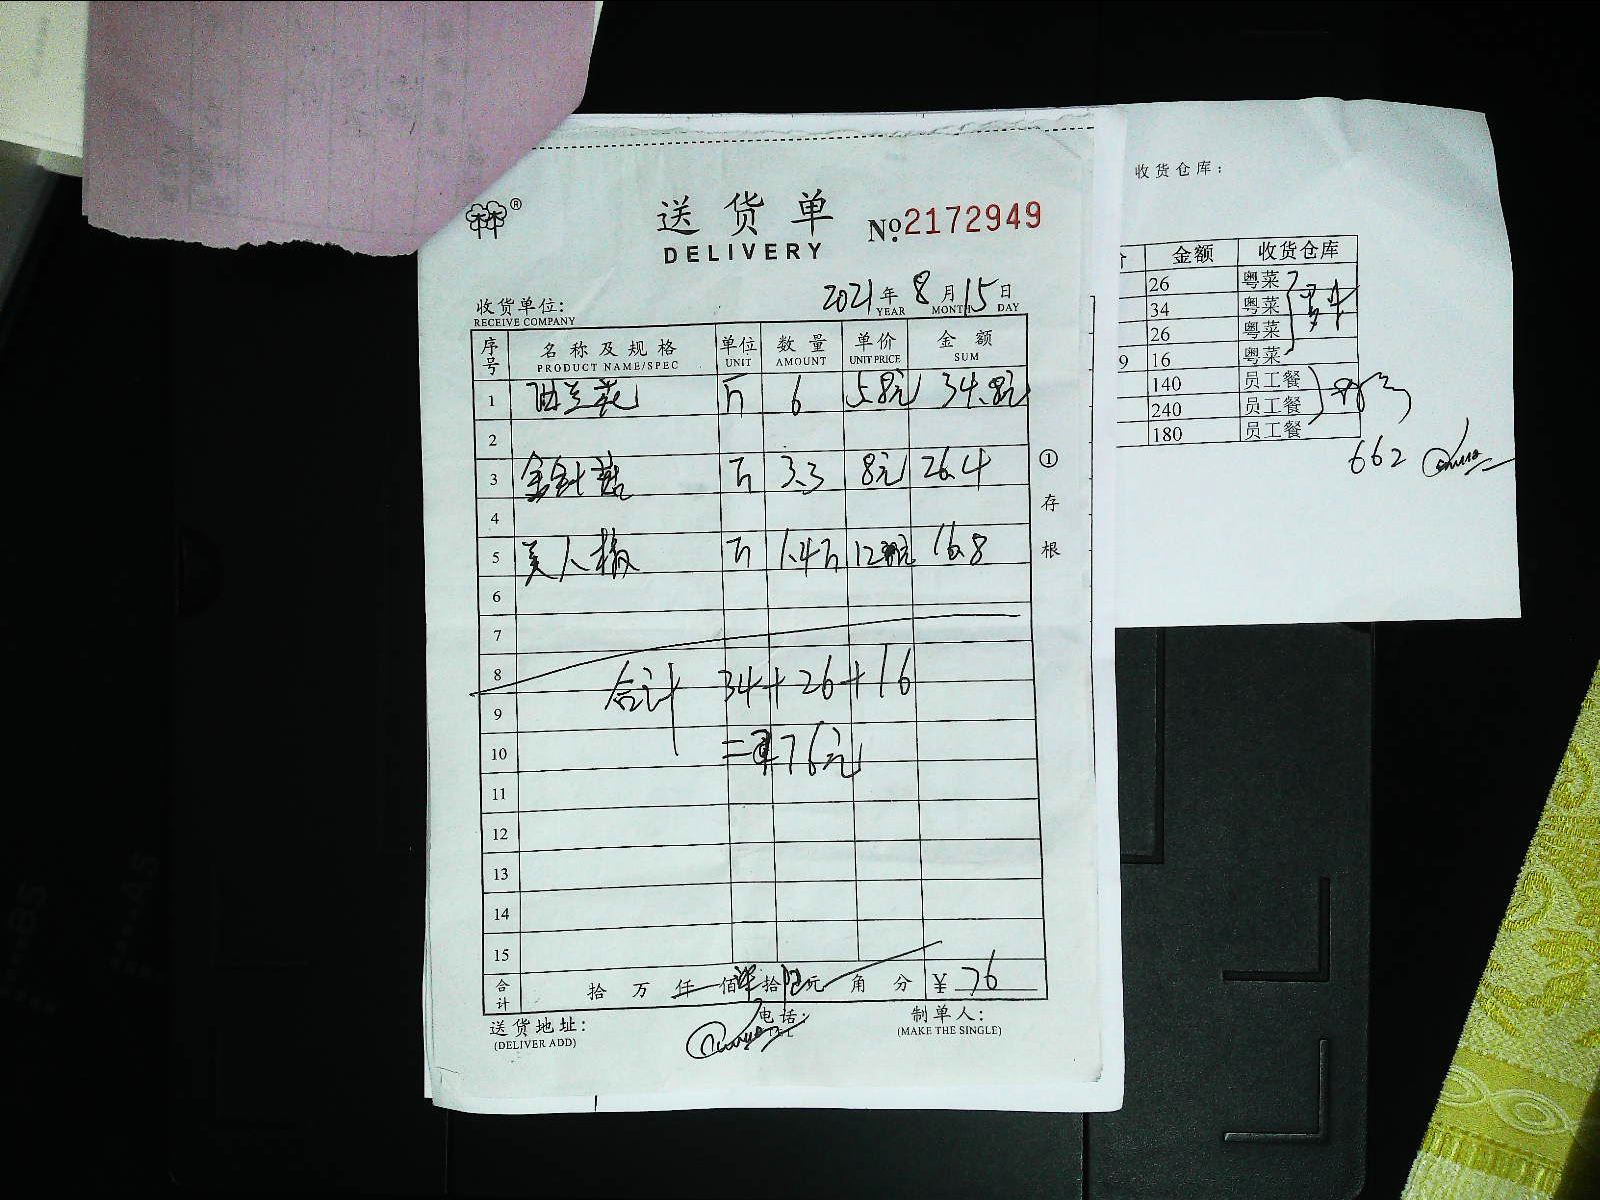 送货单
DELIVERY
№ 2172949
收货单位:
RECEIVE COMPANY
2021年 8月 15日
YEAR MONTH DAY
序号 名称及规格 单位 数量 单价 金额
PRODUCT NAME/SPEC UNIT AMOUNT UNIT PRICE SUM
1 西兰花 斤 6 5.8元 34.8元
2
3 金针菇 斤 3.3 8元 26.4
4
5 美人椒 斤 1.4斤 12元 16.8
6
7
8 合计 34+26+16
9
10 =76元
11
12
13
14
15
合计 拾 万 仟 佰 拾 元 角 分 ¥ 76
送货地址: 电话: 制单人:
(DELIVER ADD) TEL (MAKE THE SINGLE)
①
存
根
收货仓库:
金额 收货仓库
26 粤菜
34 粤菜
26 粤菜
9 16 粤菜
140 员工餐
240 员工餐
180 员工餐
662